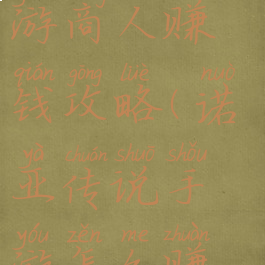 游商人赚
qián gōng lüè nuò
钱攻略(诺
yà chuán shuō shǒu
亚传说手
yóu zěn me zhuàn